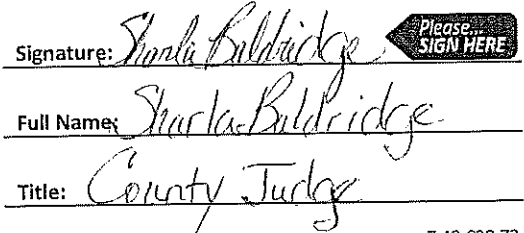 Signature: Sharla Baldridge
Please...
SIGN HERE
Full Name: Sharla Baldridge
Title: County Judge